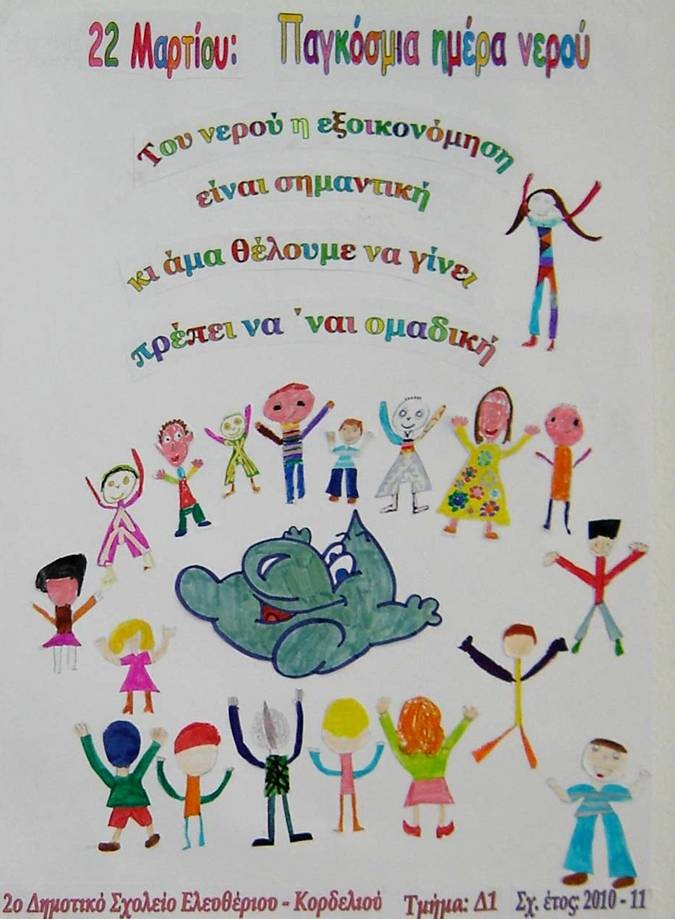 22 Μαρτίου: Παγκόσμια ημέρα νερού
Του νερού η εξοικονόμηση
είναι σημαντική
κι άμα θέλουμε να γίνει
πρέπει να 'ναι ομαδική
2ο Δημοτικό Σχολείο Ελευθέριου - Κορδελιού Τμήμα: Δ1 Σχ. έτος: 2010 - 11